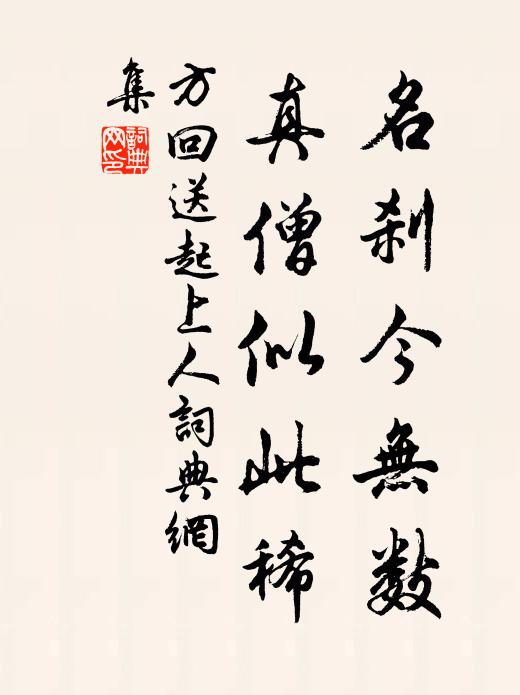 名刹今無数
真僧似此稀
方回送起上人詞典網
集
詞典網印